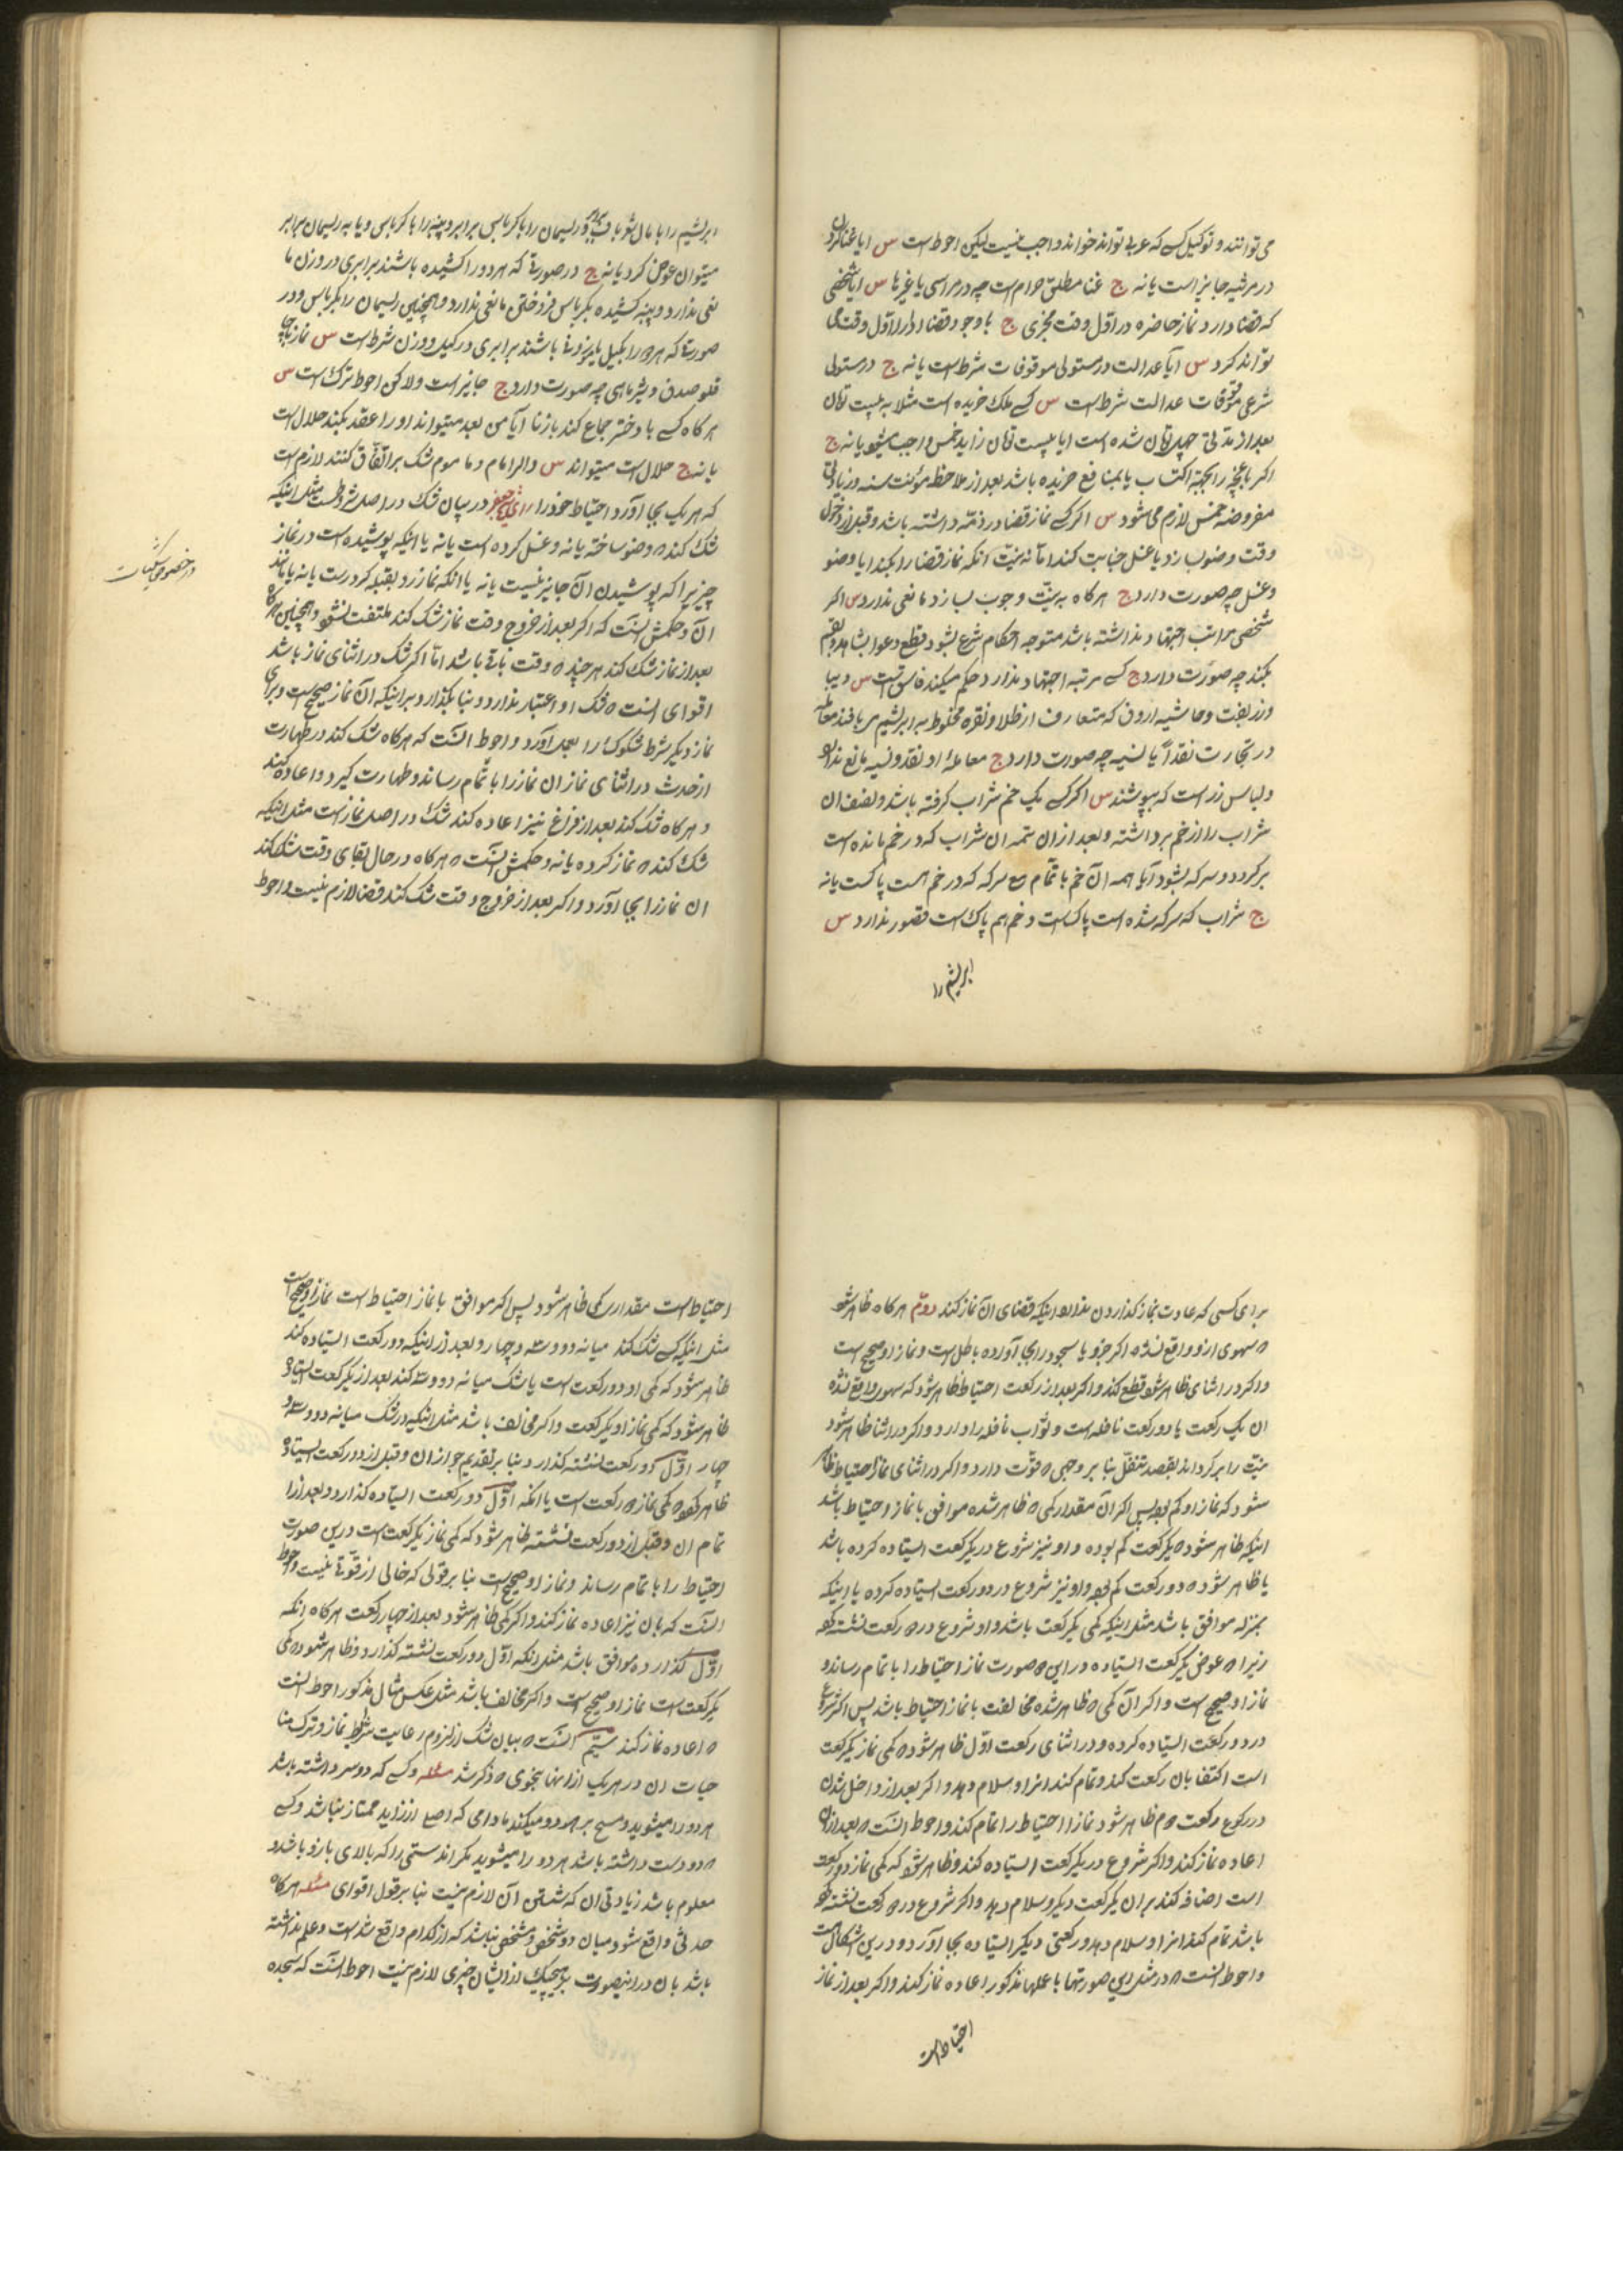 می توانند و توکیل کسی که عربی تواند خواند واجب نیست لیکن احوط است س ایا غنا کردن
در مرثیه جایز است یا نه ج غنا مطلق حرام است چه در مراسی یا غیرها س ایا شخصی
که قضا دارد نماز حاضره در اول وقت مجزی ج با وجود قضا ادا را اول وقت می
تواند کرد س آیا عدالت در متولی موقوفات شرط است یا نه ج در متولی
شرعی موقوفات عدالت شرط است س کسی ملک خریده است مثلا به بیست تومان
بعد از مدتی چهل تومان شده است ایا بیست تومان زاید خمس واجب میشود یا نه ج
اکر باغچه را بجهة اکتساب یا بمنافع خریده باشد بعد از ملاحظه مؤنت سنه و زیادتی
مفروضه خمس لازم می شود س اکر کسی نماز قضا در ذمه داشته باشد و قبل از دخول
وقت وضو بسازد یا غسل جنابت کند اما نه بنیت انکه نماز قضا را بکند ایا وضو
و غسل چه صورت دارد ج هرکاه به نیت وجوب بسازد مانعی ندارد س اکر
شخصی مراتب اجتهاد نداشته باشد متوجه احکام شرع بشود و قطع دعوا بشاهد و قسم
بکند چه صورت دارد ج کسی مرتبه اجتهاد ندارد حکم میکند فاسق است س دیبا
وزربفت و حاشیه که متعارف از طلا و نقره مخلوط به ابریشم می بافند معامله
در تجارت نقداً یا نسیه چه صورت دارد ج معامله او نقد و نسیه مانع ندارد
و لباس زر است که بپوشند س اکر کسی یک خم شراب کرفته باشد و نصف ان
شراب را از خم برداشته و بعد از ان تتمه ان شراب که در خم مانده است
برکردد و سرکه بشود آیا همه آن خم با تمام سرکه که در خم است پاکست یا نه
ج شراب که سرکه شده است پاکست و خم هم پاک است قصور ندارد س
ابریشم را
ابریشم را با مال شعرباف برابر و ریسمان را با کرباس برابر و پنبه را با کرباس و یا به ریسمان برابر
میتوان عوض کرد یا نه ج در صورتی که هر دو را کشیده باشند برابری در وزن ما
نعی ندارد و پنبه کشیده بکرباس فروختن مانعی ندارد و همچنین ریسمان را بکرباس و در
صورتی که هر دو را بکیل یا بوزن باشند برابری در کیل و وزن شرط است س نماز با
صدف و شیر ماهی چه صورت دارد ج جایز است ولاکن احوط ترک است س
هر کاه کسی با دختر جماع کند بزنا آیا من بعد میتواند او را عقد بکند حلال است
یا نه ج حلال است میتواند س والرامام و ماموم شک بر اتفاق کنند لازم است
که هر یک بجا آورد احتیاط خود را در بیان شک در اصل شروط است مثل اینکه
شک کند که وضو ساخته یا نه و غسل کرده است یا نه یا اینکه پوشیده است در نماز
چیزی را که پوشیدن آن جایز نیست یا نه یا انکه نماز رو بقبله کرد است یا نه یا مانند
آن و حکمش انست که اکر بعد از خروج وقت نماز شک کند ملتفت نشود و همچنین هرکاه
بعد از نماز شک کند هر چند که وقت باقی باشد اما اکر شک در اثنای نماز باشد
اقوای انست که شک او اعتبار ندارد و بنا بکذارد بر اینکه آن نماز صحیح است و برای
نماز دیکر شرط مشکوک را بعمل آورد و احوط انست که هرکاه شک کند در طهارت
از حدث در اثنای نماز ان نماز را با تمام رساند و طهارت کیرد و اعاده کند
و هرکاه شک کند بعد از فراغ نیز اعاده کند شک در اصل نماز است مثل اینکه
شک کند که نماز کرده یا نه و حکمش انست که هرکاه در حال بقای وقت شک کند
ان نماز را بجا آورد و اکر بعد از خروج وقت شک کند قضا لازم نیست و احوط
در خصوص شکیات
برای کسی که عادت بنماز کذاردن ندارد اینکه قضای آن نماز کند دویم هرکاه ظاهر شود
که سهوی از او واقع نشده اکر جزو یا سجود را بجا آورده باطل است و نماز او صحیح است
و اکر در اثنای ظاهر شود قطع کند و اکر بعد از رکعت احتیاط ظاهر شود که سهو واقع نشده
ان یک رکعت یا دو رکعت نافله است و ثواب نافله را دارد و اکر در اثنا ظاهر شود
نیت را برکرداند بقصد تنفل بنا بر وجهی که قوت دارد و اکر در اثنای نماز احتیاط ظاهر
شود که نماز او کم بوده پس اکر آن مقدار کمی که ظاهر شده موافق با نماز احتیاط باشد
اینکه ظاهر شود که یکرکعت کم بوده و او نیز شروع در یکرکعت ایستاده کرده باشد
یا ظاهر شود که دو رکعت کم بوده و او نیز شروع در دو رکعت ایستاده کرده یا اینکه
بمنزله موافق باشد مثل اینکه کمی یکرکعت باشد و او شروع در دو رکعت نشسته کرده
زیرا که عوض یکرکعت ایستاده در این دو صورت نماز احتیاط را با تمام رساند و
نماز او صحیح است و اکر آن کمی که ظاهر شده مخالفت با نماز احتیاط باشد پس اکر شروع
در دو رکعت ایستاده کرده و در اثنای رکعت اول ظاهر شود که کمی نماز یکرکعت
است اکتفا بان رکعت کند و تمام کند انرا و سلام دهد و اکر بعد از داخل شدن
در رکوع رکعت دوم ظاهر شود نماز احتیاط را تمام کند و احوط انست که بعد از ان
اعاده نماز کند و اکر شروع در یکرکعت ایستاده کند و ظاهر شود که کمی نماز دو رکعت
است اضافه کند بر ان یکرکعت دیکر و سلام دهد و اکر شروع در دو رکعت نشسته کرده
باشد تمام کند انرا و سلام دهد و رکعتی دیکر ایستاده بجا آورد و درین اشکال است
و احوط انست که در مثل این صورتها با عملها مذکور اعاده نماز کند و اکر بعد از نماز
احتیاط است
احتیاط است مقدار کمی ظاهر شود پس اکر موافق با نماز احتیاط است نماز او صحیح است
مثل اینکه کسی شک کند میانه دو و سه و چهار و بعد از اینکه دو رکعت ایستاده کند
ظاهر شود که کمی او دو رکعت است یا شک میانه دو و سه کند بعد از یکرکعت ایستاده
ظاهر شود که کمی نماز او یکرکعت و اکر مخالف باشد مثل اینکه در شک میانه دو و سه و
چهار اول دو رکعت نشسته کذارد بنا بر تقدیم جواز ان و قبل از دو رکعت ایستاده
ظاهر شود که کمی نماز دو رکعت است یا انکه اول دو رکعت ایستاده کذارد و بعد از
تمام ان و قبل از دو رکعت نشسته ظاهر شود که کمی نماز یکرکعت است درین صورت
احتیاط را با تمام رساند و نماز او صحیح است بنا بر قولی که خالی از قوة نیست و احوط
انست که بان نیز اعاده نماز کند و اکر کمی ظاهر شود بعد از چهار رکعت هرکاه انکه
اول کذارده موافق باشد مثل انکه اول دو رکعت نشسته کذارد و ظاهر شود که کمی
یکرکعت است نماز او صحیح است و اکر مخالف باشد مثل عکس مثال مذکور احوط انست
که اعاده نماز کند سیم انست که بیان شک از لزوم رعایت شرایط نماز و ترک منا
فیات ان در هر یک از انها بنحوی که ذکر شد مسئله و کسی که دو سر داشته باشد
هر دو را میشوید و مسح بر هر دو میکند مادامی که اصلی از زاید ممتاز نباشد و کسی
که دو دست داشته باشد هر دو را میشوید مکر اندستی را که بالای بازو باشد و
معلوم باشد زیادتی ان که شستن آن لازم نیست بنا بر قول اقوای مسئله هرکاه
حدثی واقع شود میان دو شخص و مشخص نباشد که از کدام واقع شده است و علم نداشته
باشد بان در اینصورت بر هیچیک از ایشان چیزی لازم نیست احوط انست که سجده